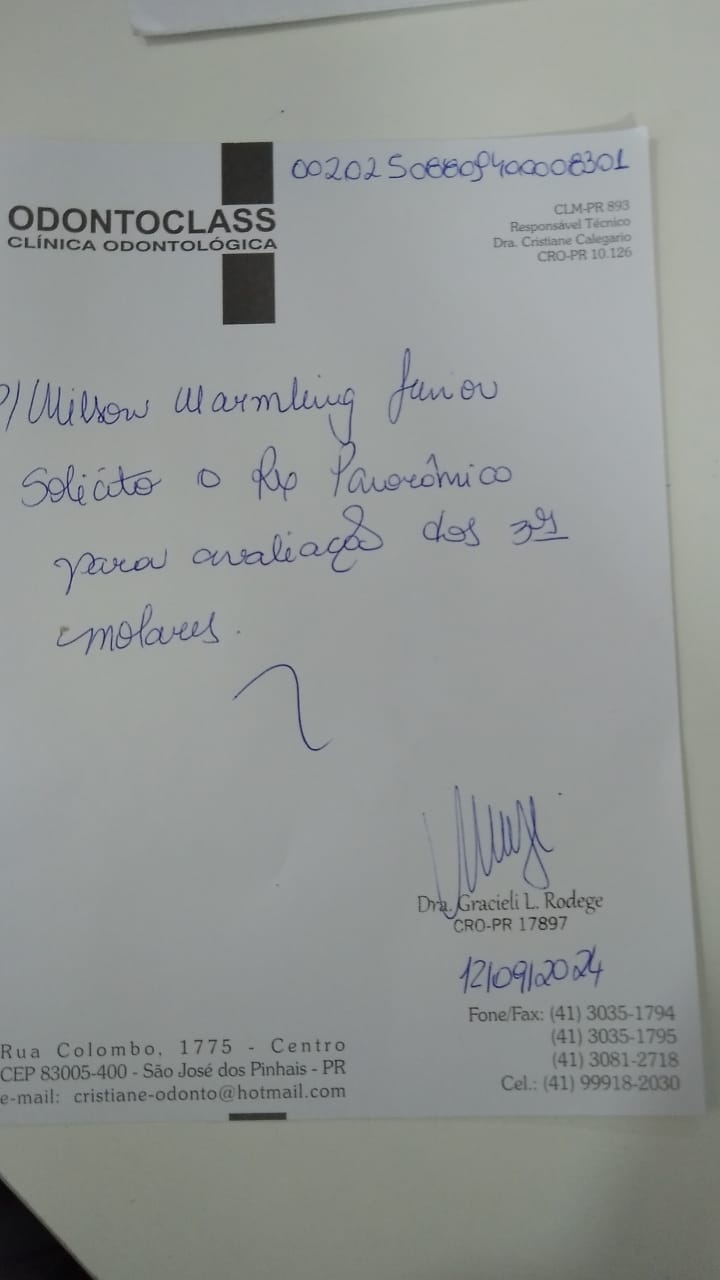 00202508809400008301
ODONTOCLASS
CLÍNICA ODONTOLÓGICA
CLM-PR 893
Responsável Técnico
Dra. Cristiane Calegario
CRO-PR 10.126
P/ Wilson Warmling Junior
Solicito o Rx Panorâmico
para avaliação dos 3ºs
molares.
Dra. Gracieli L. Rodege
CRO-PR 17897
12/09/2024
Fone/Fax: (41) 3035-1794
(41) 3035-1795
(41) 3081-2718
Cel.: (41) 99918-2030
Rua Colombo, 1775 - Centro
CEP 83005-400 - São José dos Pinhais - PR
e-mail: cristiane-odonto@hotmail.com